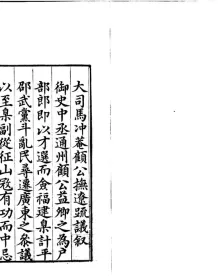 大司馬冲菴顧公撫遼疏議叙
御史中丞通州顧公益卿之為戶
部郎即以才選而僉福建臬計平
邵武黨斗亂民尋遷廣東之叅議
以至臬副從征山寇有功而中忌